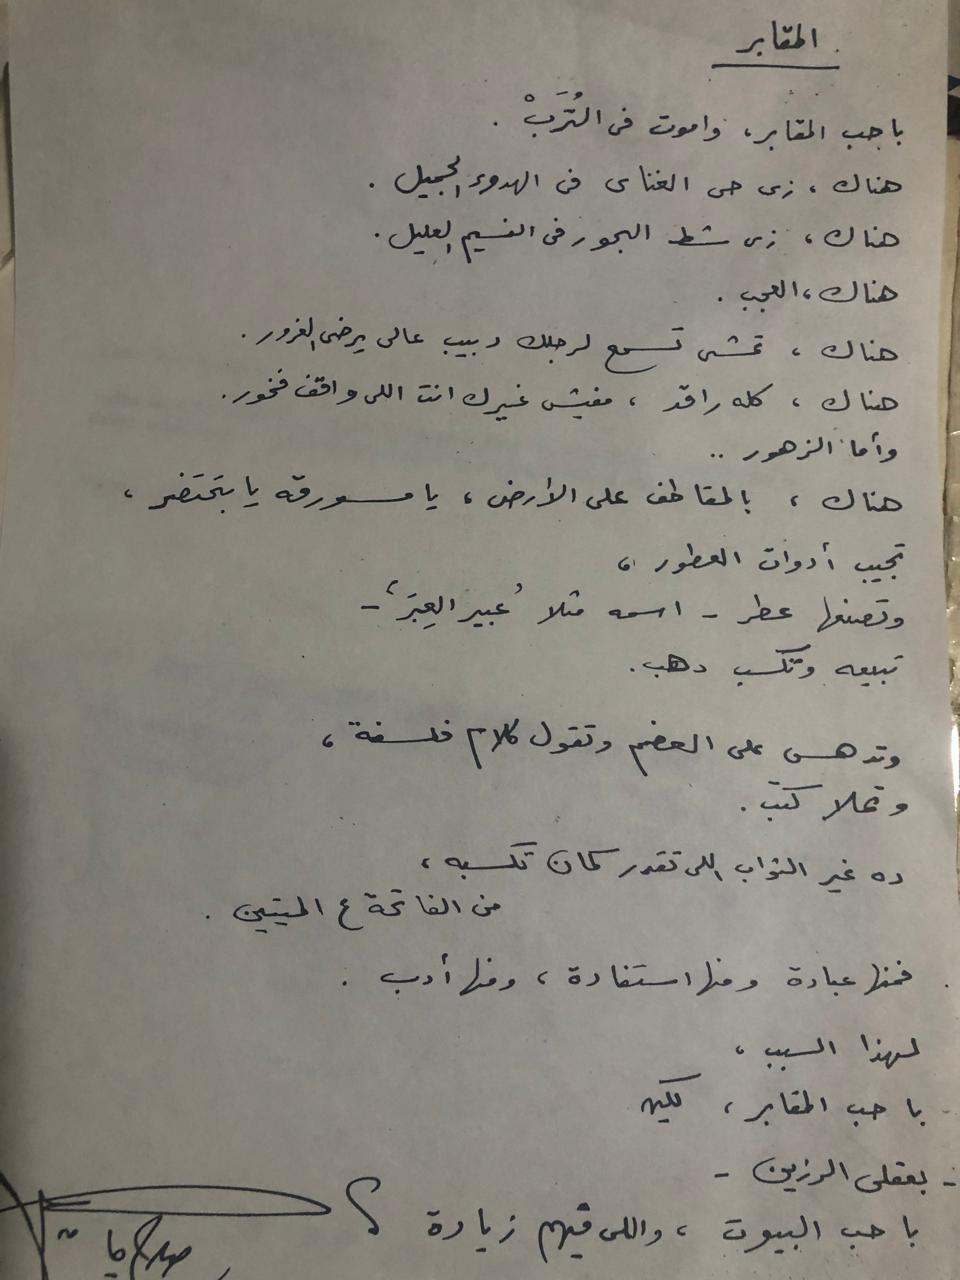 المقابر
باحب المقابر، واموت فى التُرَبْ .
هناك ، زى حى الغناى فى الهدوء الجميل .
هناك ، زى شط البحور فى النسيم العليل .
هناك ، العجب .
هناك ، تمشى تسمع لرجلك دبيب عالى يرضى الغرور .
هناك ، كله راقد ، مفيش غيرك انت اللى واقف فخور.
وأما الزهور ..
هناك ، بالمقاطف على الأرض ، يا مسورقه يا بتحتضر ،
تجيب أدوات العطور ،
وتصنعها عطر - اسمه مثلا ’عبير العِبَر‘ -
تبيعه وتكسب دهب.
وتدهس على العضم وتقول كلام فلسفة ،
وتملا كتب .
ده غير الثواب اللى تقدر كمان تكسبه ،
من الفاتحة ع الميتين .
فمنها عبادة ومنها استفادة ، ومنها أدب .
لهذا السبب ،
با حب المقابر ، لكين
- بعقلى الرزين -
با حب البيوت ، واللى فيهم زيادة
صلاح